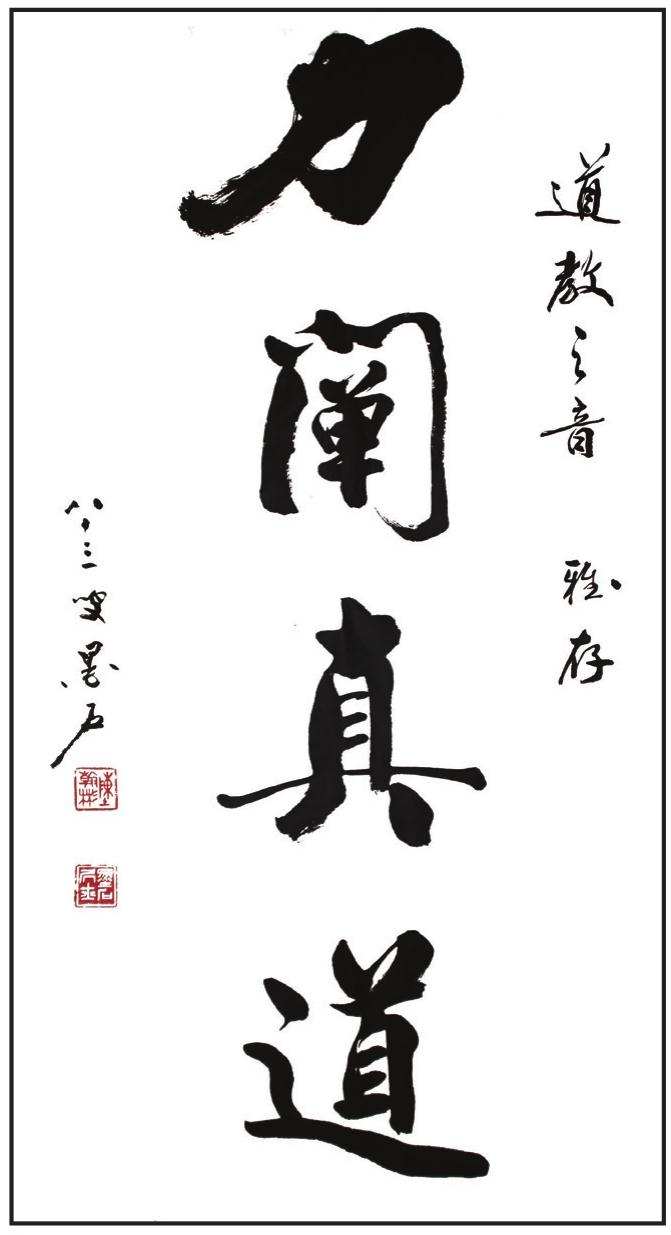 道教之音 雅存
力阐真道
八十三叟墨石